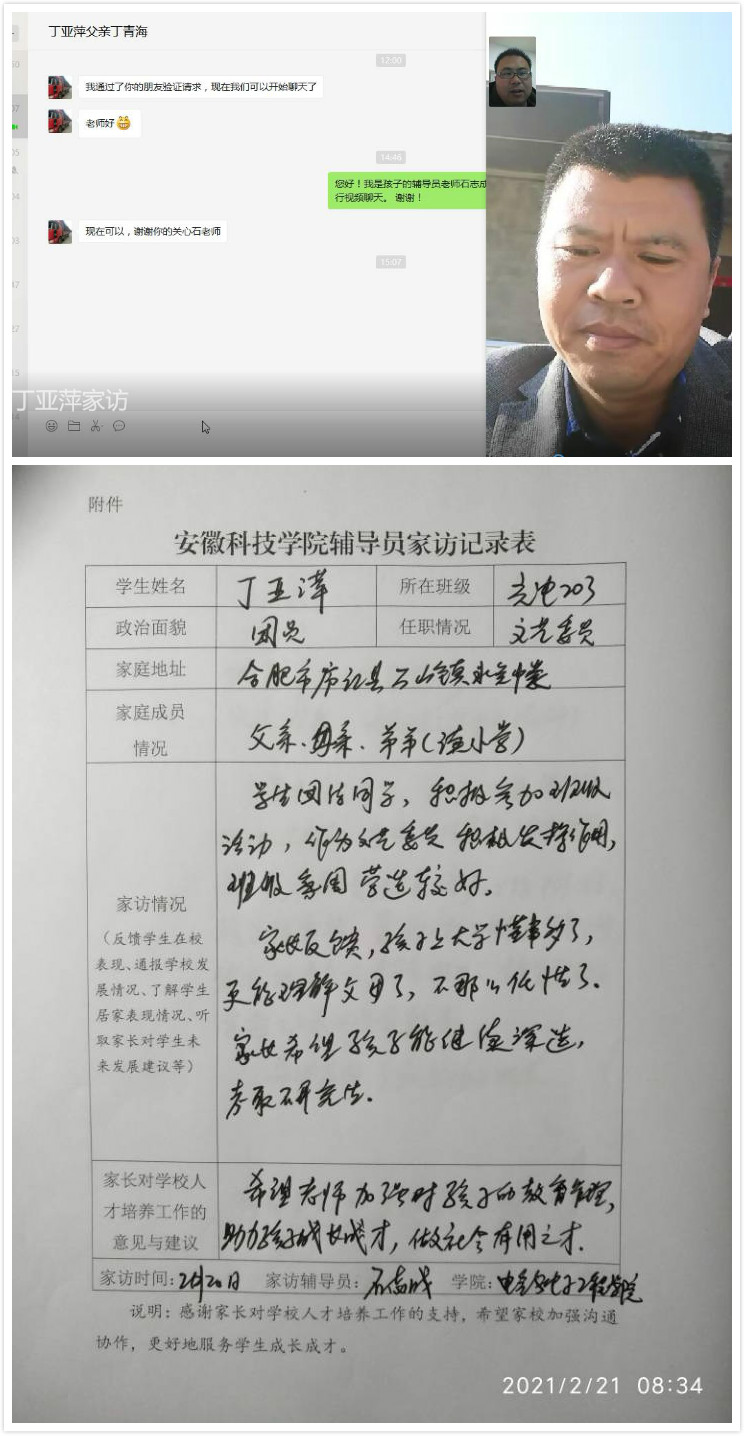 丁亚萍父亲丁青海
12:00
我通过了你的朋友验证请求，现在我们可以开始聊天了
老师好
14:46
您好！我是孩子的辅导员老师石志成
行视频聊天。 谢谢！
现在可以，谢谢你的关心石老师
15:07
丁亚萍家访
附件
安徽科技学院辅导员家访记录表
学生姓名 丁亚萍 所在班级 光电203
政治面貌 团员 任职情况 文艺委员
家庭地址 合肥市庐江县石山镇
家庭成员
情况
父亲、母亲、弟弟（读小学）
学生团结同学，积极参加班级
活动，作为文艺委员积极发挥作用，
班级氛围营造较好。
家长反馈，孩子上大学懂事多了，
更能理解父母了，不那么任性了。
家长希望孩子能继续深造，
考取研究生。
家访情况
（反馈学生在校
表现、通报学校发
展情况、了解学生
居家表现情况、听
取家长对学生未
来发展建议等）
家长对学校人
才培养工作的
意见与建议
希望老师加强对孩子的教育管理，
助力孩子成长成才，做社会有用之才.
家访时间：2月20日 家访辅导员：石志成 学院：电气与电子工程学院
说明：感谢家长对学校人才培养工作的支持，希望家校加强沟通
协作，更好地服务学生成长成才。
2021/2/21 08:34